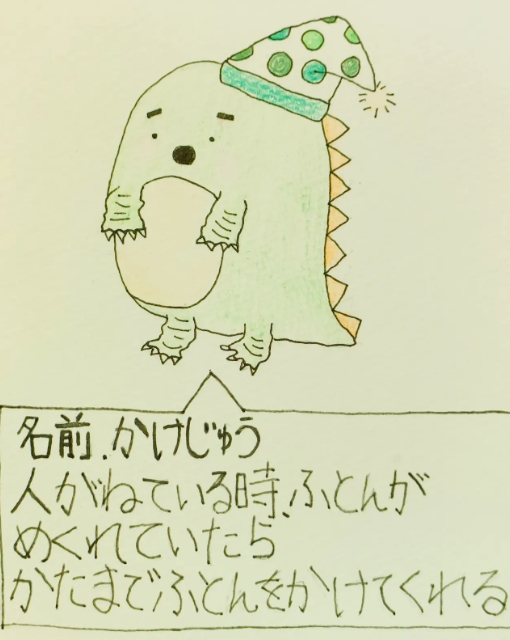 名前、かけじゅう
人がねている時、ふとんが
めくれていたら
かたまでふとんをかけてくれる